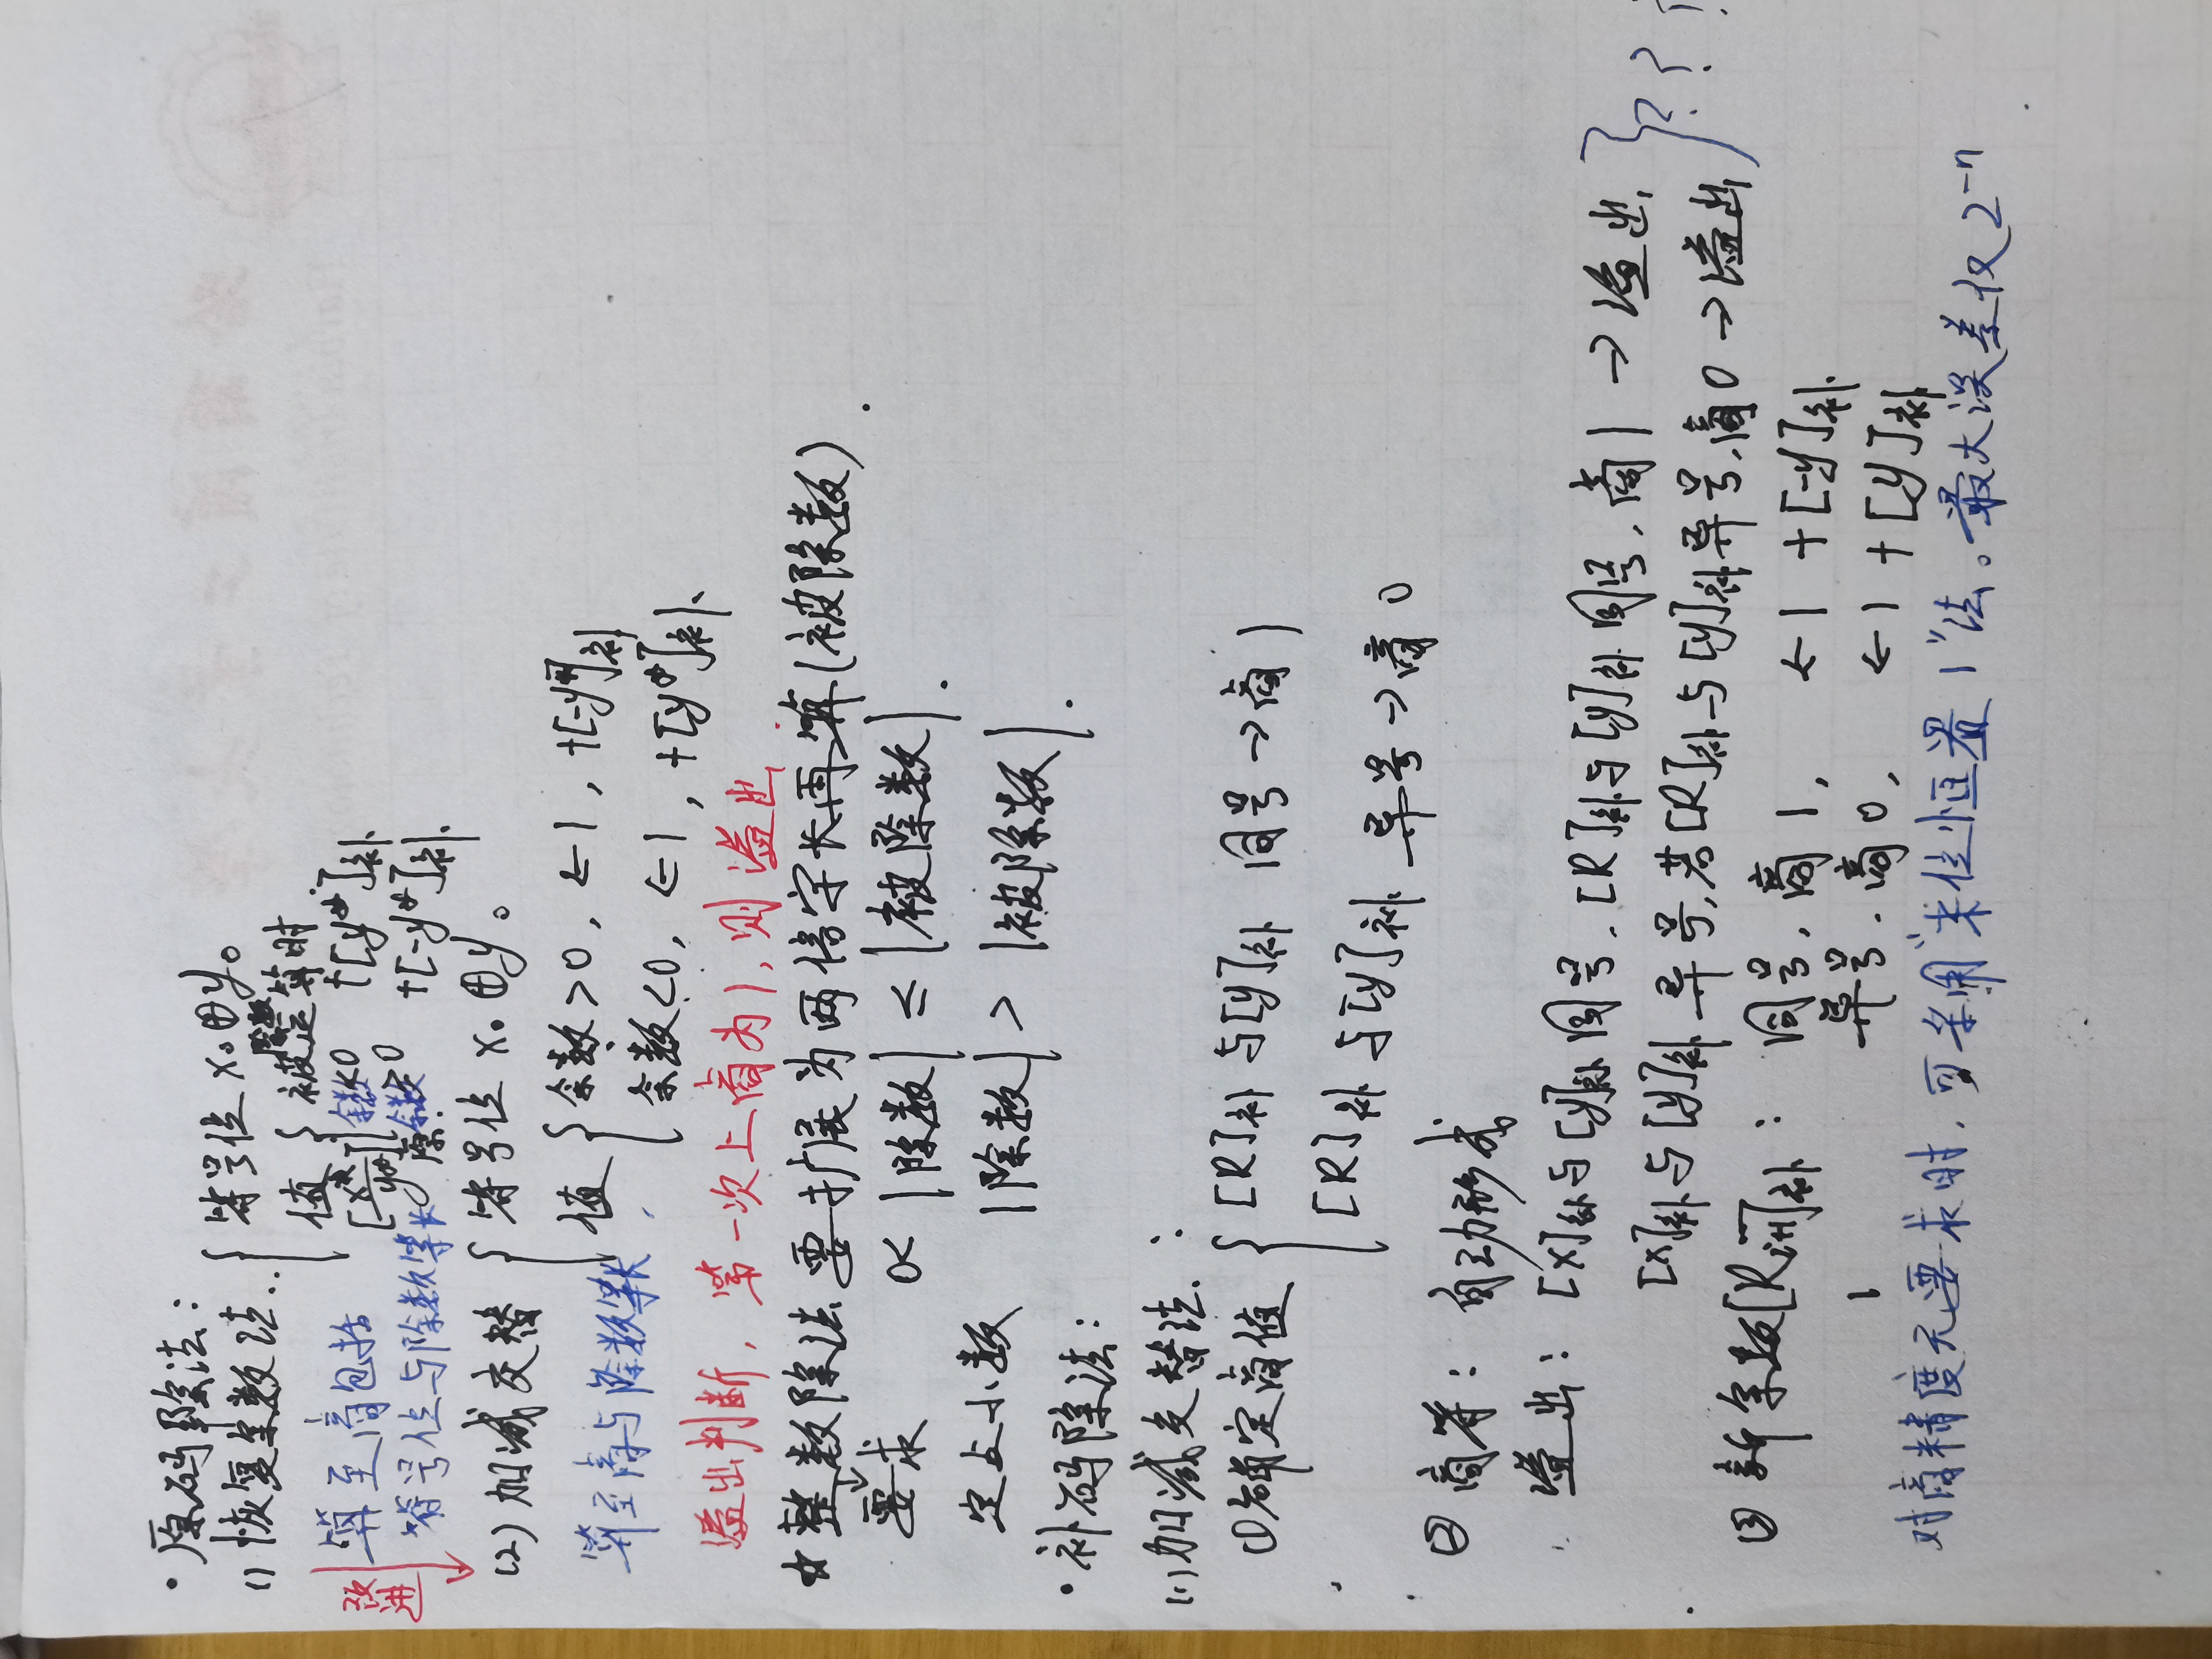 · 原码除法：
(1) 恢复余数法. { 符号位 x₀⊕y₀
值 { 被除数运算时
[x*] 余数<0 +[y*]补
[-y*]补 余数>0 +[-y*]补
改进
算至商包括
符号位与除数等长
(2) 加减交替 { 符号位 x₀⊕y₀。
值 { 余数>0, ←1, +[-y*]补
余数<0, ←1, +[y*]补
算至商与除数等长
溢出判断, 第一次上商为1, 则溢出
☆ 整数除法要扩展为两倍字长再算(被除数)
要求 0< |除数| ≤ |被除数|.
定点小数 |除数| > |被除数|.
· 补码除法：
(1) 加减交替法.：
① 确定商值 { [R]补与[y]补 同号→商1
[R]补与[y]补 异号→商0
② 商符： 自动形成
溢出： [x]补与[y]补同号, [R]补与[y]补同号, 商1→溢出
[x]补与[y]补异号, 若[R]补与[y]补异号, 商0→溢出 } ???
③ 新余数[Ri+1]补： 同号, 商1, ←1 +[-y]补
异号, 商0, ←1 +[y]补
对商精度无要求时, 可采用“末位恒置1”法。最大误差仅2⁻ⁿ